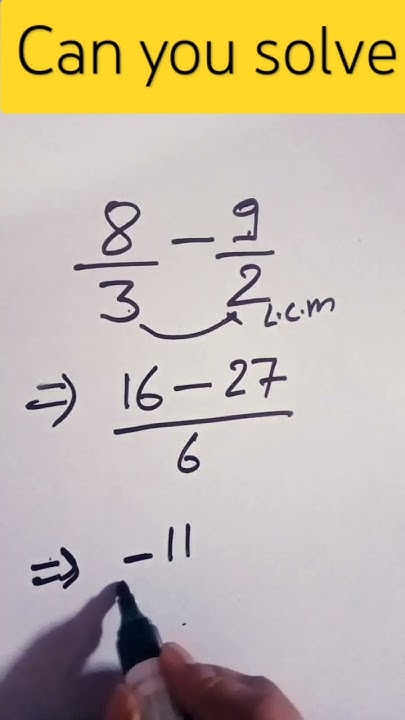 Can you solve
8/3 - 9/2
L.C.M
=> 16 - 27 / 6
=> - 11